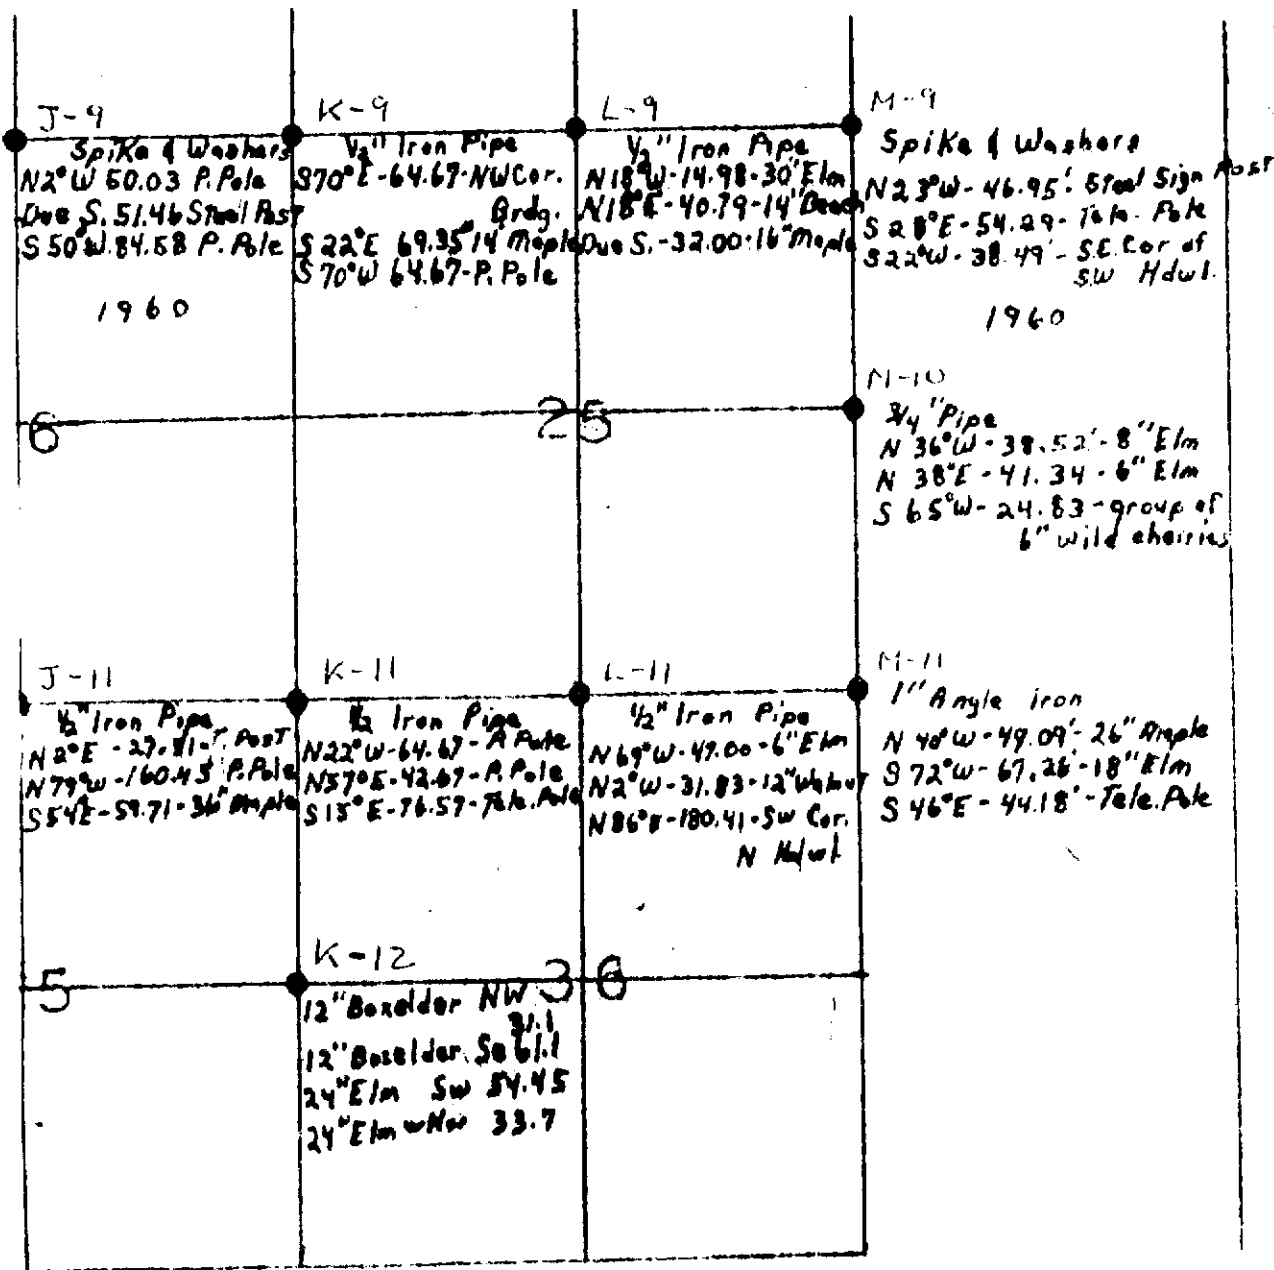 J-9
Spike & Washers
N2°W 50.03 P. Pole
Due S. 51.46 Steel Post
S 50°W. 84.58 P. Pole
1960
K-9
1/2" Iron Pipe
S70°E-64.67-NW Cor.
Brdg.
S 22°E 69.35 14" Maple
S 70°W 64.67-P. Pole
L-9
1/2" Iron Pipe
N18°W-14.98-30" Elm
N18°E-40.79-14" Beach
Due S.-32.00-16" Maple
M-9
Spike & Washers
N23°W-46.95'-Steel Sign Post
S 28°E-54.29-Tele. Pole
S22°W-38.49'-S.E. Cor of
SW Hdwl.
1960
6
2 5
M-10
3/4" Pipe
N 36°W-38.52'-8" Elm
N 38°E-41.34-6" Elm
S 65°W-24.83-group of
6" wild cherries
J-11
1/2" Iron Pipe
N2°E-27.81-T. Post
N79°W-160.45 P. Pole
S54E-59.71-36" Maple
K-11
1/2 Iron Pipe
N22°W-64.67-P. Pole
N57°E-42.67-P. Pole
S15°E-76.57-Tele. Pole
L-11
1/2" Iron Pipe
N69°W-49.00-6" Elm
N2°W-31.83-12" Walnut
N86°E-180.41-SW Cor.
N Hdwl
M-11
1" Angle iron
N 40°W-49.09'-26" Maple
S 72°W-67.26-18" Elm
S 46°E-44.18'-Tele. Pole
5
3 6
K-12
12" Boxelder NW
31.1
12" Boxelder Se 61.1
24" Elm SW 54.45
24" Elm wNw 33.7